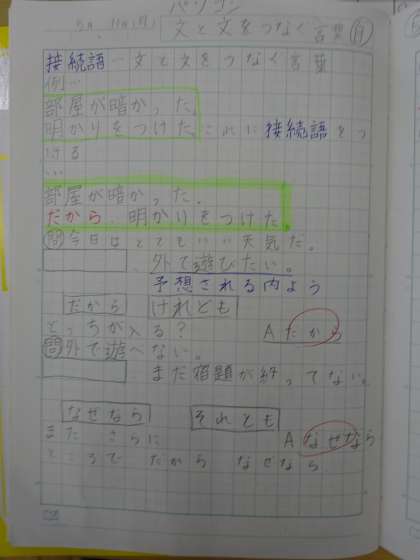 パソコン
5月 11日(月)
文と文をつなぐ言葉①
接続語―文と文をつなぐ言葉
例…
部屋が暗かった。
明かりをつけた。これに接続語をつ
ける
…
部屋が暗かった。
だから、明かりをつけた。
問今日はとてもいい天気だ。
、外で遊びたい。
予想される内よう
だから けれども
どっちが入る? A だから
問外で遊べない。
、まだ宿題が終ってない。
なぜなら それとも
A なぜなら
また さらに
ところで だから なぜなら